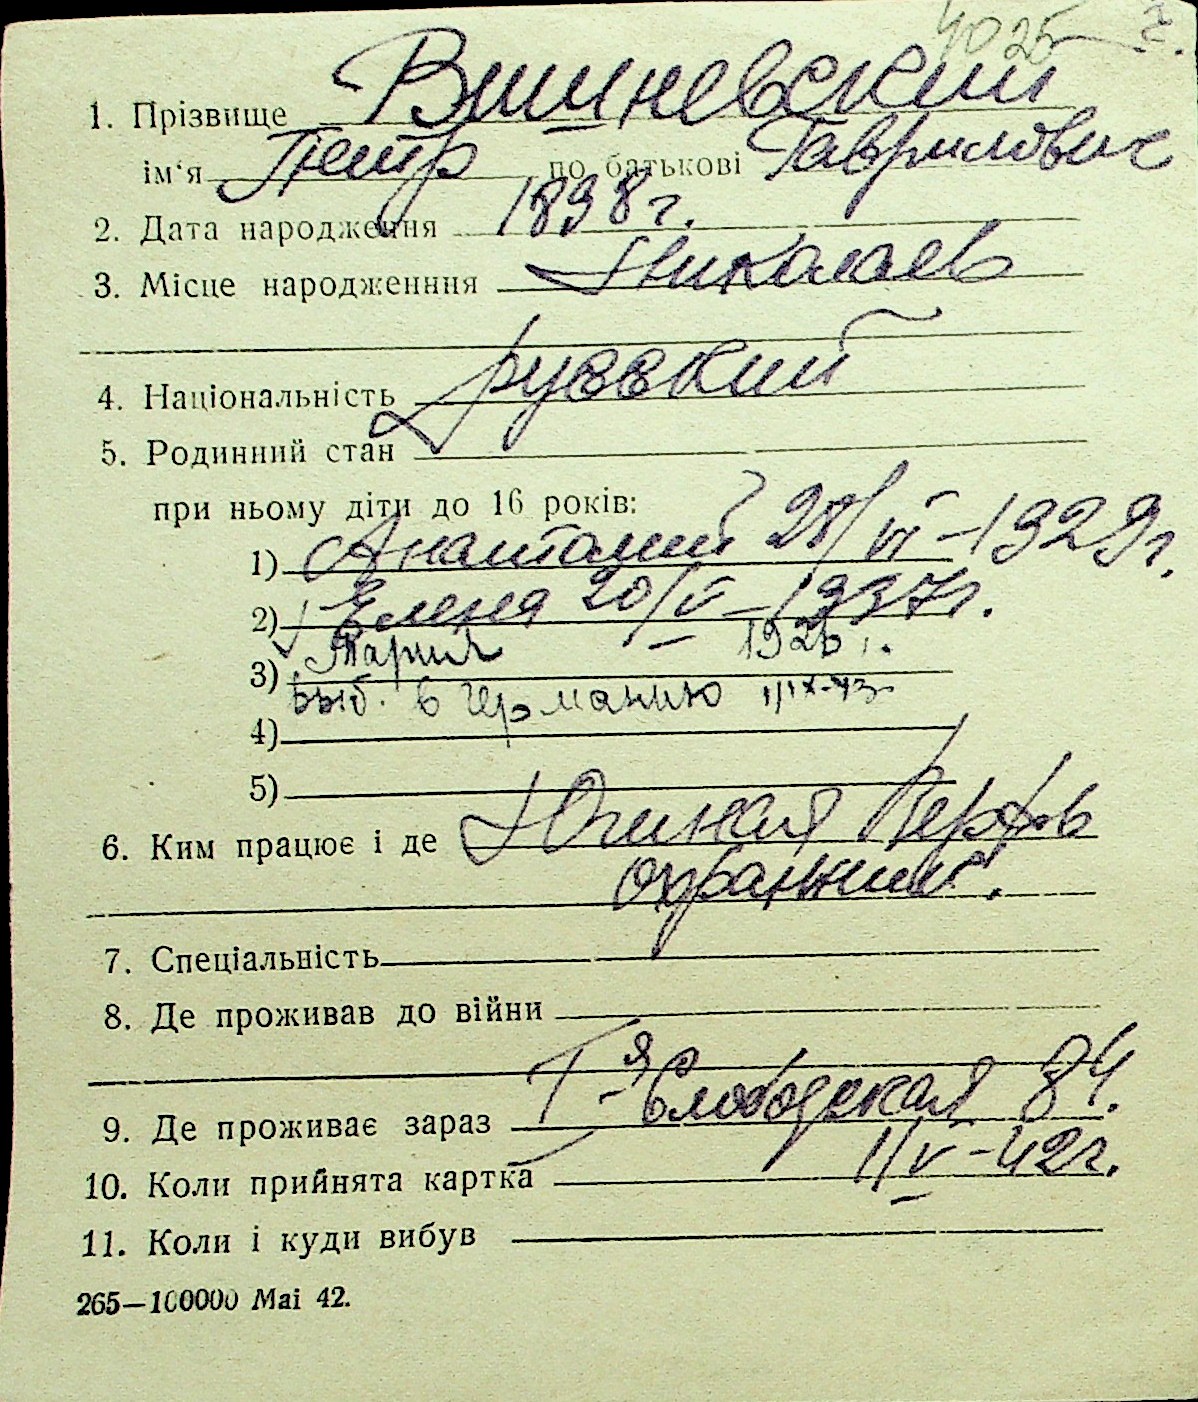 4025
1. Прізвище Вишневский
ім‘я Петр по батькові Гаврилович
2. Дата народження 1898 г.
3. Місце народженння Николаев
4. Національність русский
5. Родинний стан
при ньому діти до 16 років:
1) Анатолий 28/VI-1929 г.
2) Елена 20/V-1937 г.
3) Мария 1926 г.
выб. в Германию 1/IX-43
4)
5)
6. Ким працює і де Южная Верфь
охранник.
7. Спеціальність
8. Де проживав до війни
9. Де проживає зараз 1-я Слободская 84.
10. Коли прийнята картка 1/V-42 г.
11. Коли і куди вибув
265—100000 Маі 42.